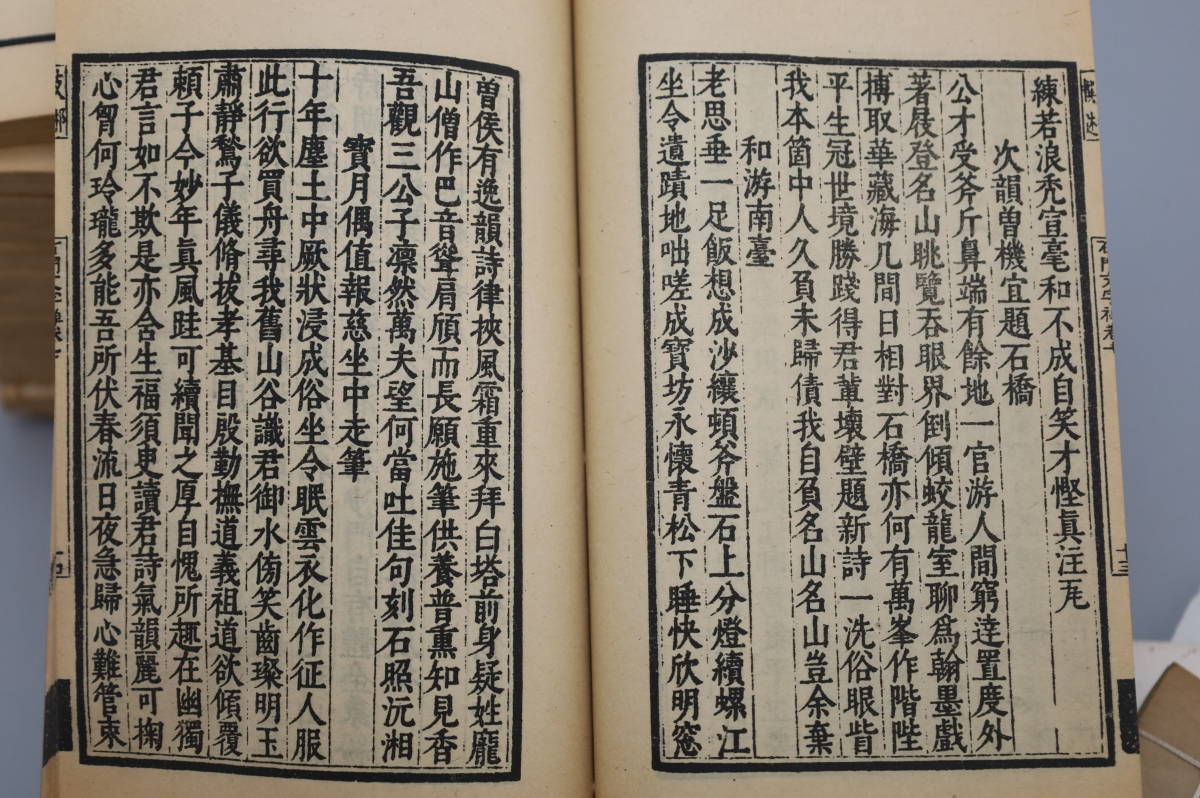 練若浪禿宣毫和不成自笑才慳真注瓦
次韻曽機宜題石橋
公才受斧斤鼻端有餘地一官游人間窮達置度外
著屐登名山眺覽吞眼界倒傾蛟龍室聊爲翰墨戲
摶取華藏海几間日相對石橋亦何有萬峯作階陛
平生冠世境勝踐得君輩壞壁題新詩一洗俗眼眥
我本箇中人久負未歸債我自負名山名山豈余棄
和游南臺
老思垂一足飯想成沙纕頓斧盤石上分燈續螺江
坐令遺蹟地咄嗟成寶坊永懷青松下睡快欣明窓
曽侯有逸韻詩律挾風霜重來拜白塔前身疑姓龐
山僧作巴音聳肩頎而長願施筆供養普熏知見香
吾觀三公子凛然萬夫望何當吐佳句刻石照沅湘
寶月偶值報慈坐中走筆
十年塵土中厥狀浸成俗坐令眠雲衣化作征人服
此行欲買舟尋我舊山谷識君御水傍笑齒璨明玉
肅靜鶖子儀脩拔孝基目殷勤撫道義祖道欲傾覆
頼子今妙年真風跬可續聞之厚自愧所趣在幽獨
君言如不欺是亦舍生福須臾讀君詩氣韻麗可掬
心胷何玲瓏多能吾所伏春流日夜急歸心難管束
十三